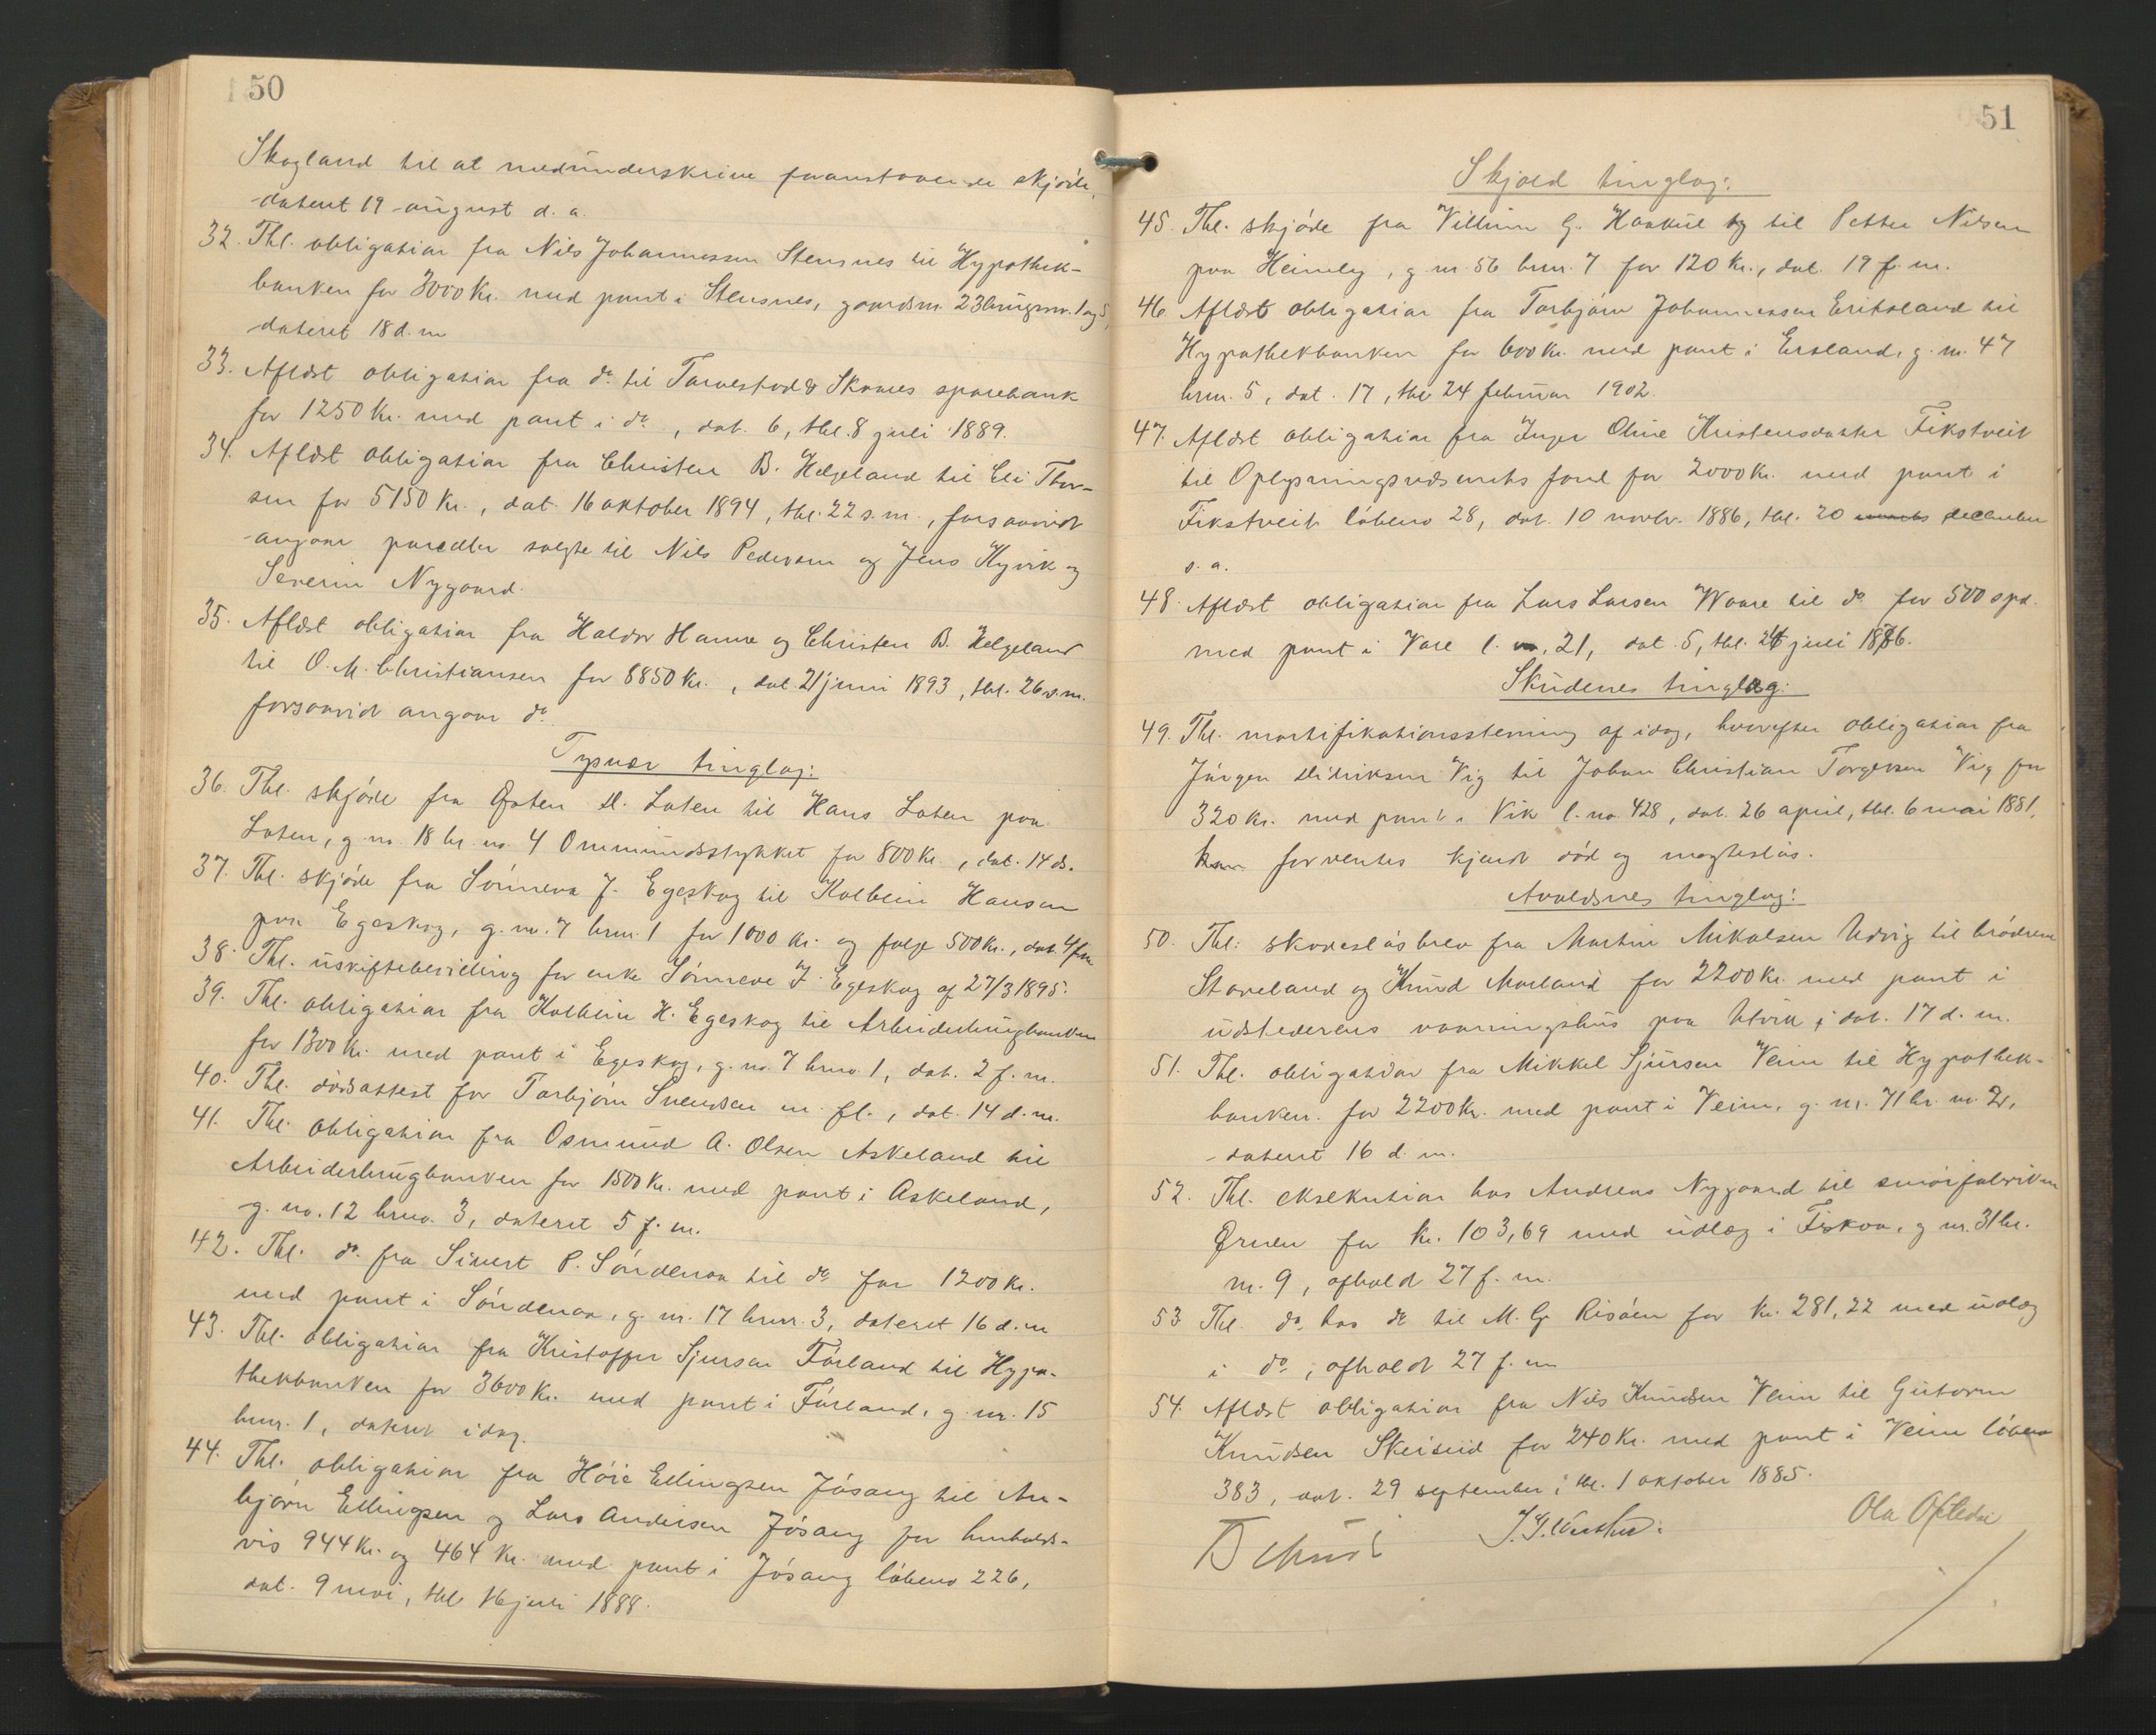 50
Skogland til at medunderskrive foranstaaende skjøde,
dateret 19 august d. a.
32. Thl. obligation fra Nils Johannessen Stensnes til Hypothek-
banken for 3000 Kr. med pant i Stensnes, gaardsnr. 23 brugsnr. 1 og 5,
dateret 18 d. m.
33. Aflæst obligation fra do. til Torvestad & Skaares sparebank
for 1250 Kr. med pant i do., dat. 6, thl. 8 juli 1889.
34. Aflæst obligation fra Christen B. Helgeland til Eli Thor-
sen for 5150 Kr., dat. 16 oktober 1894, thl. 22 s. m., forsaavidt
angaar parceller solgte til Nils Pedersen og Jens Kyvik og
Severin Nygaard.
35. Aflæst obligation fra Haldor Hamre og Christen B. Helgeland
til O. M. Christiansen for 8850 Kr., dat. 21 juni 1893, thl. 26 s. m.
forsaavidt angaar do.
Tysvær tinglag:
36. Thl. skjøde fra D. Loten til Hans Loten paa
Loten, g. no. 18 br. no. 4 Ommundsstykket for 800 Kr., dat. 14 ds.
37. Thl. skjøde fra Sønneva J. Egeskog til Kolbein Hansen
paa Egeskog, g. no. 7 brno. 1 for 1000 Kr. og folge 500 Kr., dat. 4/fm
38. Thl. uskiftebevilling for enke Sønneve J. Egeskog af 27/3 1895.
39. Thl. obligation fra Kolbein H. Egeskog til Arbeiderbrugbanken
for 1300 Kr. med pant i Egeskog, g. no. 7 brno. 1, dat. 2 f. m.
40. Thl. dødsattest for Torbjørn Svendsen m. fl., dat. 14 d. m.
41. Thl. obligation fra Osmund A. Olsen Askeland til
Arbeiderbrugbanken for 1500 Kr. med pant i Askeland,
g. no. 12 brno. 3, dateret 5 f. m.
42. Thl. do. fra Sivert P. Søndenaa til do. for 1200 Kr.
med pant i Søndenaa, g. nr. 17 brnr. 3, dateret 16 d. m
43. Thl. obligation fra Kristoffer Sjursen Førland til Hypo-
thekbanken for 3600 Kr. med pant i Førland, g. nr. 15
brnr. 1, dateret idag.
44. Thl. obligation fra Elling­sen Jøsang til An-
bjørn Ellingsen og Lars Andersen Jøsang for henholds-
vis 944 Kr. og 464 Kr. med pant i Jøsang løbeno 226,
dat. 9 mai, thl. 16 juli 1888.
51
Skjold tinglag:
45. Thl. skjøde fra Villum G. til Petter Nilsen
paa Heimly, g. nr. 56 brnr. 7 for 120 Kr., dat. 19 f. m.
46. Aflæst obligation fra Torbjørn Johannessen Eriksland til
Hypothekbanken for 600 Kr. med pant i Ersland, g. nr. 47
brnr. 5, dat. 17, thl. 24 februar 1902.
47. Aflæst obligation fra Inger Oline Kristensdatter Fikstveit
til Oplysningsvæsenets fond for 2000 Kr. med pant i
Fikstveit løbeno 28, dat. 10 novbr. 1886, thl. 20 december
s. a.
48. Aflæst obligation fra Lars Larsen Waare til do. for 500 spd.
med pant i Vare l. no. 21, dat. 5, thl. juli 1876.
Skudenes tinglag:
49. Thl. mortifikationsstevning af idag, hvorefter obligation fra
Jørgen Didriksen Vig til Johan Christian Torgersen Vig for
320 Kr. med pant i Vik l. no. 428, dat. 26 april, thl. 6 mai 1881,
kan forventes kjendt død og magtesløs.
Avaldsnes tinglag:
50. Thl. skadesløsbrev fra Martin Mikalsen Udvig til brødrene
Staveland og Knud Morland for 2200 Kr. med pant i
udstederens vaaningshus paa Utvik, dat. 17 d. m.
51. Thl. obligation fra Mikkel Sjursen Veim til Hypothek-
banken. for 2200 Kr. med pant i Veim, g. nr. 71 br. no. 2,
dateret 16 d. m.
52. Thl. eksekution hos Andreas Nygaard til smørfabriken
Ørnen for Kr. 103,69 med udlæg i Fiskaa, g nr. 31 br.
nr. 9, afholdt 27 f. m.
53 Thl. do. hos do til M. G. Risøen for Kr. 281,22 med udlæg
i do., afholdt 27 f. m
54. Aflæst obligation fra Nils Knudsen Veim til Gutorm
Knudsen Skeiseid for 240 Kr. med pant i Veim løbeno
383, dat. 29 september, thl. 1 oktober 1885.
Ola Ofstedi